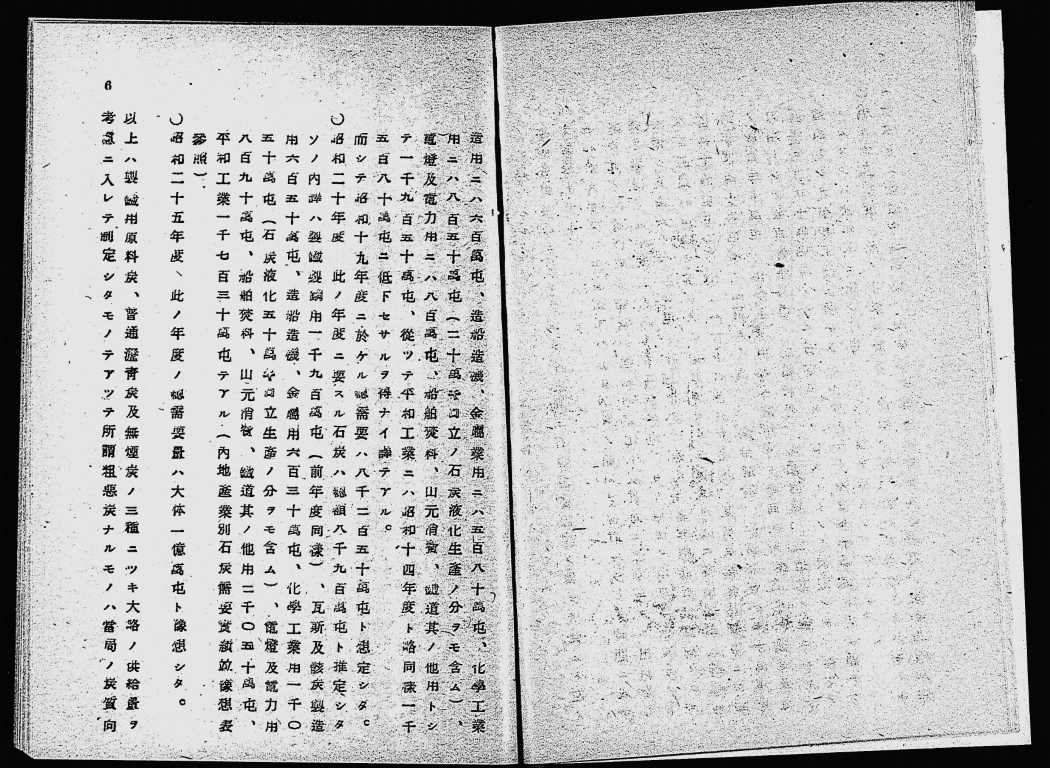 造用ニハ六百萬屯、造船造機、金屬業用ニハ五百八十萬屯、化學工業
用ニハ八百五十萬屯(二十萬立ノ石炭液化生產ノ分ヲモ含ム)、
電燈及電力用ニハ八百萬屯、船舶燃料、山元消費、鐵道其ノ他用トシ
テ一千九百五十萬屯、從ツテ平和工業ニハ昭和十四年度ト略同樣一千
五百八十萬屯ニ低下セサルヲ得ナイ譯テアル。
而シテ昭和十九年度ニ於ケル總需要ハ八千二百五十萬屯ト想定シタ。
〇昭和二十年度 此ノ年度ニ要スル石炭ハ總額八千九百萬屯ト推定シタ
ソノ內譯ハ製鐵製鋼用一千九百萬屯(前年度同樣)、瓦斯及骸炭製造
用六百五十萬屯、造船造機、金屬用六百三十萬屯、化學工業用一千〇
五十萬屯(石炭液化五十萬立生產ノ分ヲモ含ム)、電燈及電力用
八百九十萬屯、船舶燃料、山元消費、鐵道其ノ他用二千〇五十萬屯、
平和工業一千七百三十萬屯テアル(內地產業別石炭需要實績竝豫想表
參照).
〇昭和二十五年度、此ノ年度ノ總需要量ハ大体一億萬屯ト豫想シタ。
以上ハ製鐵用原料炭、普通瀝靑炭及無煙炭ノ三種ニツキ大略ノ供給量ヲ
考慮ニ入レテ制定シタモノテアツテ所謂粗惡炭ナルモノハ當局ノ炭質向
6